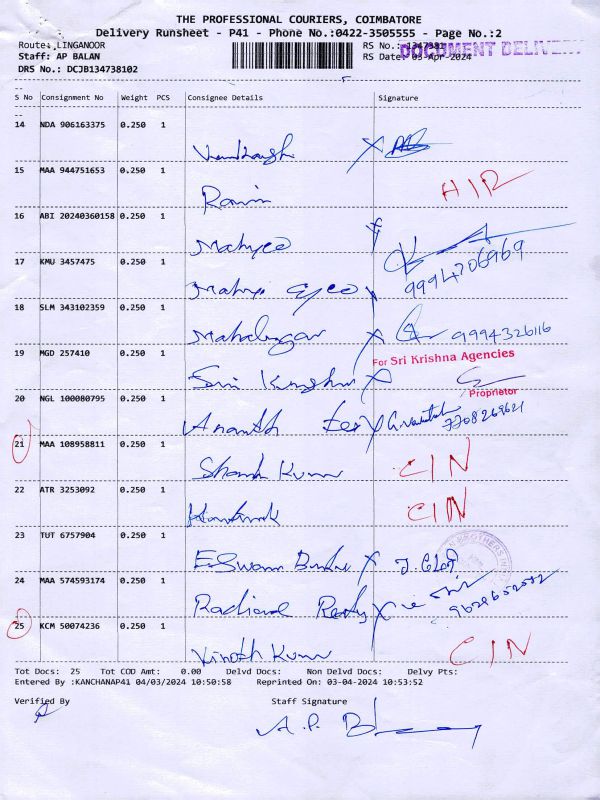 THE PROFESSIONAL COURIERS, COIMBATORE
Delivery Runsheet - P41 - Phone No.:0422-3505555 - Page No.:2
Route:,LINGANOOR RS No.: 1347381
Staff: AP BALAN RS Date: 03-Apr-2024
DOCUMENT DELIVE
DRS No.: DCJB134738102
S No Consignment No Weight PCS Consignee Details Signature
14 NDA 906163375 0.250 1
15 MAA 944751653 0.250 1
HIR
16 ABI 20240360158 0.250 1
Mahyco
17 KMU 3457475 0.250 1
9994706969
18 SLM 343102359 0.250 1
9994326116
19 MGD 257410 0.250 1
For Sri Krishna Agencies
Sri Krishna
Proprietor
20 NGL 100080795 0.250 1
Ananth Tex
7708269621
21 MAA 108958811 0.250 1
Kumar CIN
22 ATR 3253092 0.250 1
CIN
23 TUT 6757904 0.250 1
24 MAA 574593174 0.250 1
25 KCM 50074236 0.250 1
Vinoth Kumar CIN
Tot Docs: 25 Tot COD Amt: 0.00 Delvd Docs: Non Delvd Docs: Delvy Pts:
Entered By :KANCHANAP41 04/03/2024 10:50:58 Reprinted On: 03-04-2024 10:53:52
Verified By Staff Signature